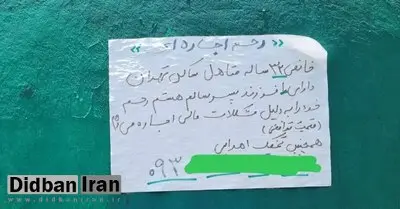 « رحم اجاره ای »
خانمی ۳۲ ساله متاهل ساکن تهران
دارای ۱ فرزند پسر سالم هستم رحم
خود را به دلیل مشکلات مالی اجاره می‌دهم
(قیمت توافقی)
همچنین تخمک اهدایی
۰۹۳
Didban Iran
www.didbaniran.ir